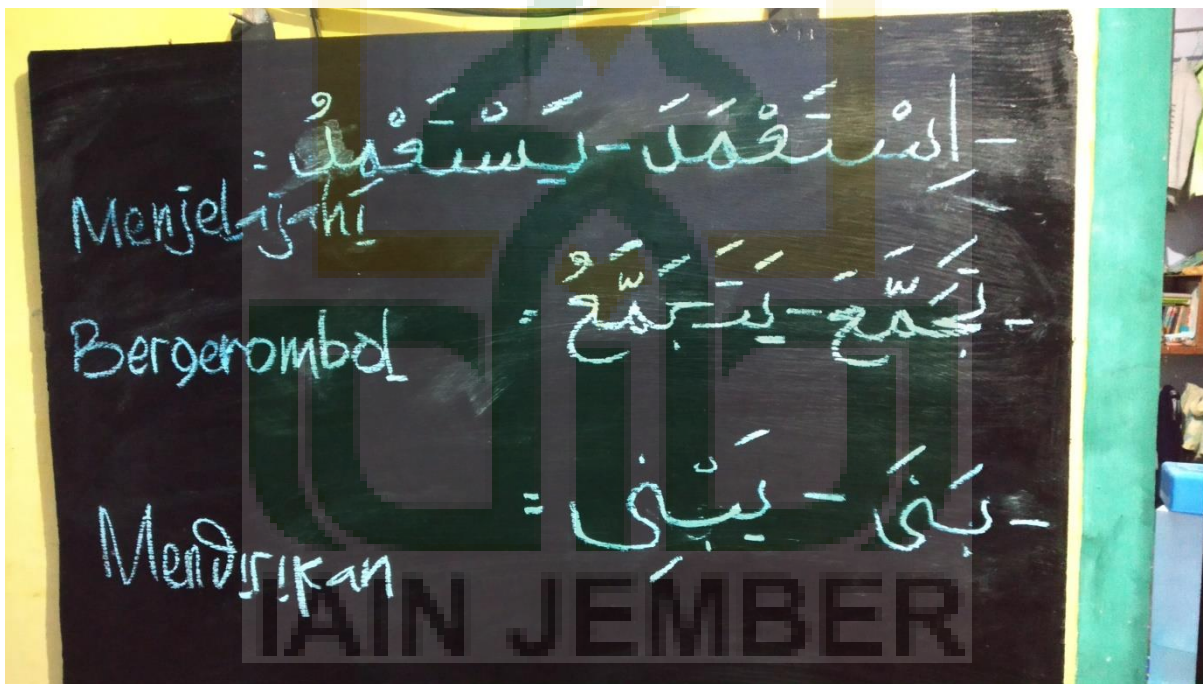 - اِسْتَعْمَدَ - يَسْتَعْمِدُ =
Menjelajahi
- تَجَمَّعَ - يَتَجَمَّعُ =
Bergerombol
- بَنَى - يَبْنِى =
Mendirikan
IAIN JEMBER